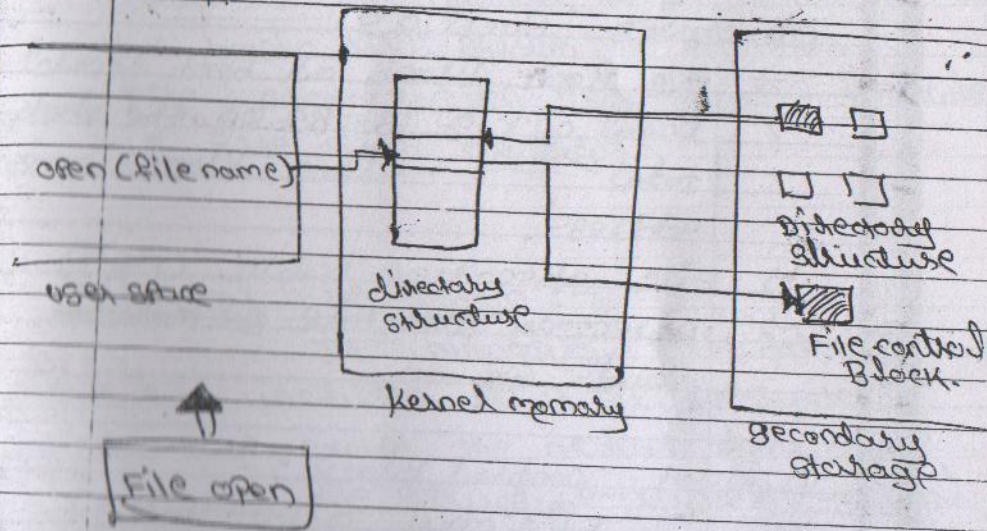 open (file name)
user space
directory
structure
Kernel momary
Directory
structure
File control
Block.
secondary
storage
File open